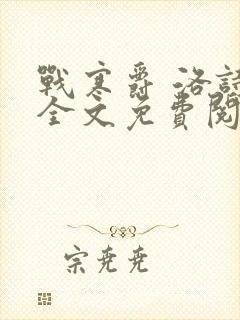 戰寒爵 洛詩
全文免費閱
宗堯堯